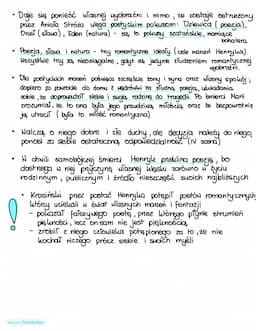 • Daje się ponieść własnej wyobraźni i mimo, że zostaje ostrzeżony
przez Anioła Stróża ulega poetyckim pokusom: Dziewica (poezja),
Orzeł (sława), Eden (natura) - są to pokusy szatańskie, maniące
bohatera.
• Poezja, sława i natura - trzy romantyczne ideały (cele marzeń Henryka).
Wszystkie trzy są nieosiągalne, gdyż są jedynie złudzeniem romantycznej
wyobraźni.
• Dla poetyckich marzeń poświęca szczęście żony i syna oraz własny spokój,
dopiero po powrocie do domu z wędrówki za złudną poezją, uświadamia
sobie, że doprowadził siebie i swoją rodzinę do tragedii. Po śmierci Marii
zrozumiał, że to ona była jego prawdziwą miłością, oraz że bezpowrotnie
ją utracił (była to miłość romantyczna)
• Walczą o niego dobre i złe duchy, ale decyzja należy do niego,
ponosi za siebie ostateczną odpowiedzialność (N scena)
• W chwili samobójczej śmierci Henryk przeklina poezję, bo
dostrzega w niej przyczynę własnej klęski zarówno w życiu
rodzinnym, publicznym i źródło nieszczęść swoich najbliższych
• Krasiński przez postać Henryka potępił poetów romantycznych,
którzy uciekali w świat własnych marzeń i fantazji
- pokazał fałszywego poetę, przez którego płynie strumień
piękności, lecz on sam nie jest pięknością,
- zrobił z niego człowieka potępionego za to, że nie
kochał niczego prócz siebie i swoich myśli